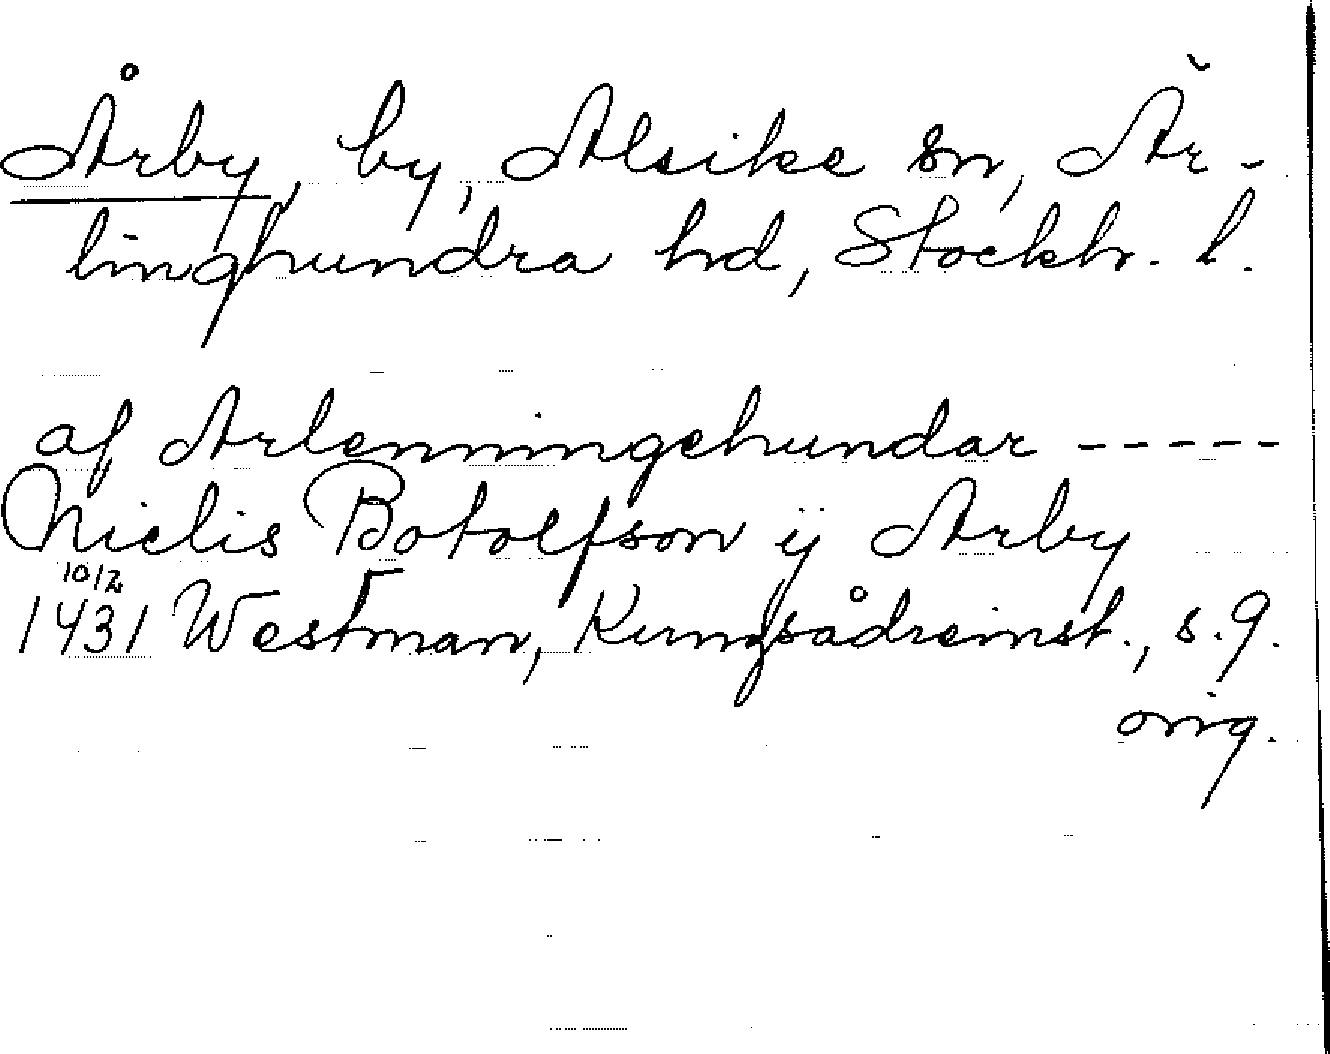 Årby, by, Alsike sn, Är-
linghundra hd, Stockh. l.
af Arlenningehundar -----
Niclis Botolfson ij Arby
10/2
1431 Westman, Kungsådreinst., s. 9.
orig.